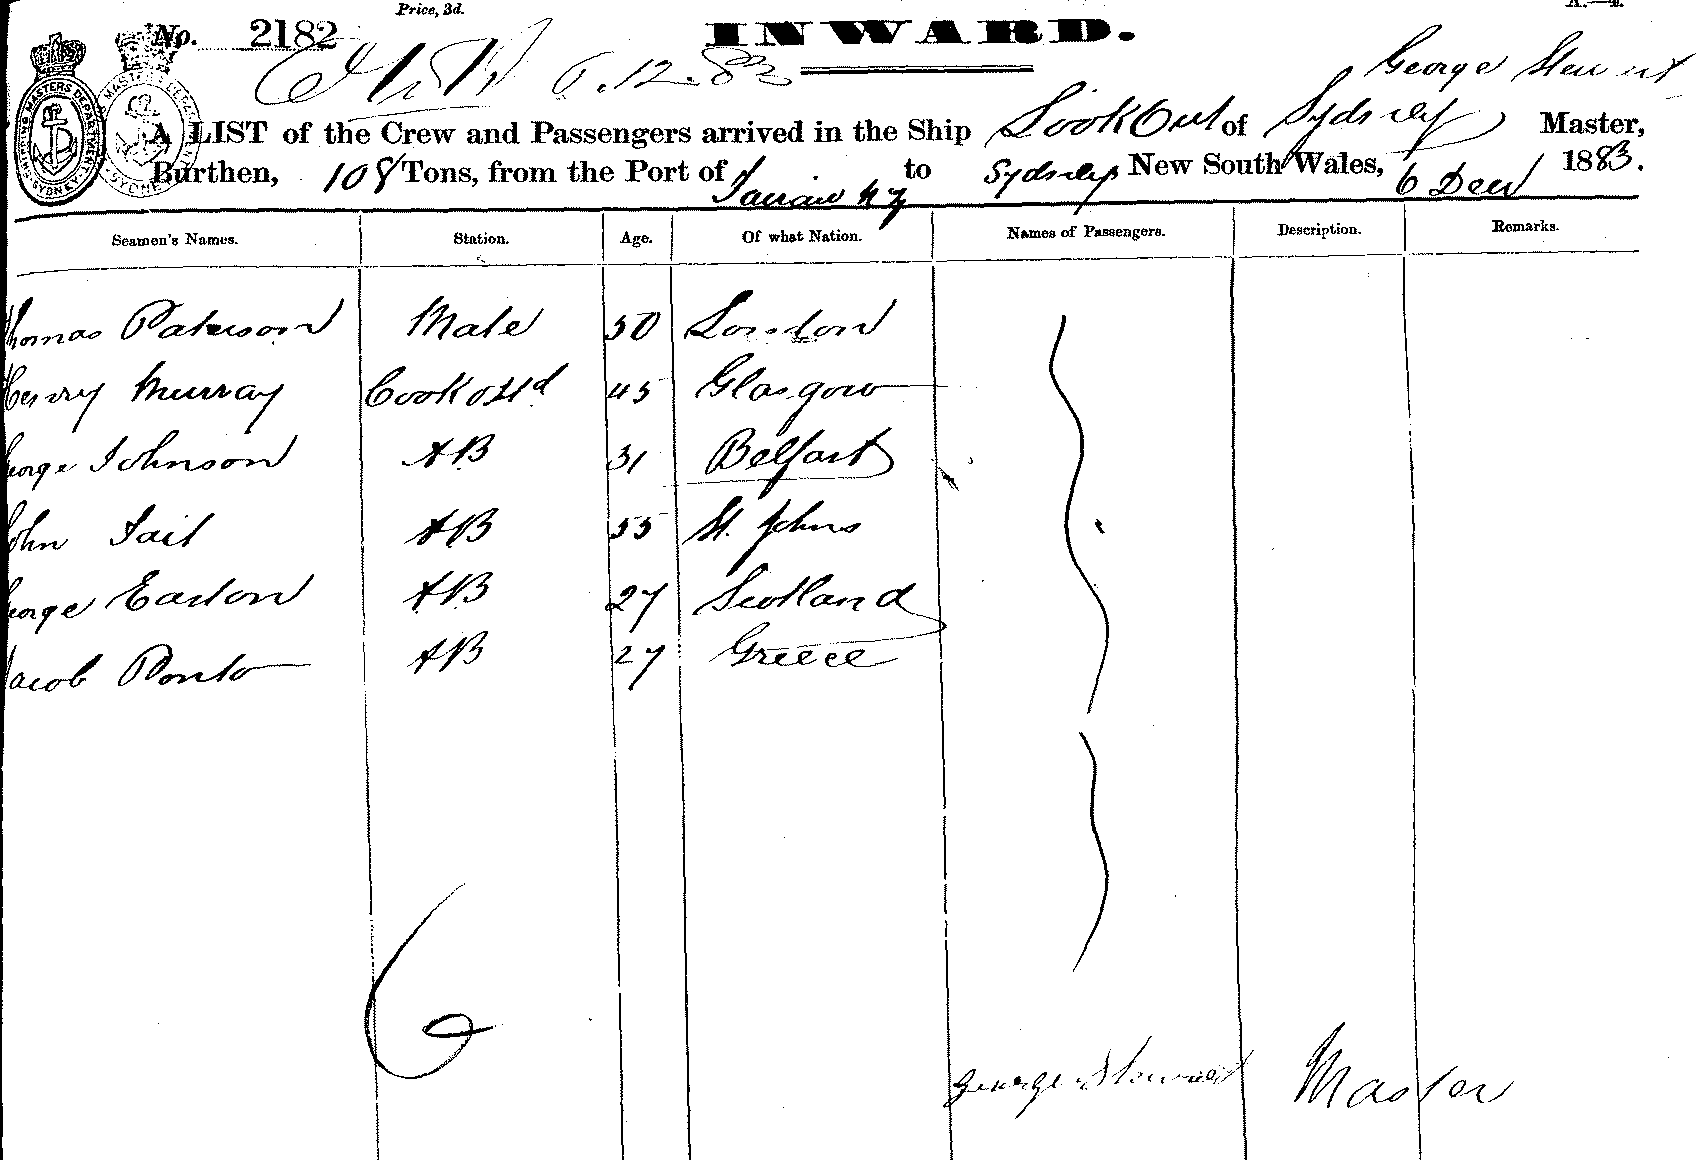 Price, 3d.
A.—4.
No. 2182
INWARD.
6.12.83
George Stewart
A LIST of the Crew and Passengers arrived in the Ship Look Out of Sydney Master,
Burthen, 108 Tons, from the Port of NZ to Sydney New South Wales, 6 Decr 1883.
Seamen's Names. Station. Age. Of what Nation. Names of Passengers. Description. Remarks.
Thomas Paterson Mate 50 London
Henry Murray Cook & Std 45 Glasgow
George Johnson AB 31 Belfast
John Tait AB 55 St. Johns
George Easton AB 27 Scotland
Jacob Ponto AB 27 Greece
6
George Stewart Master
SHIPPING MASTERS DEPARTMENT SYDNEY